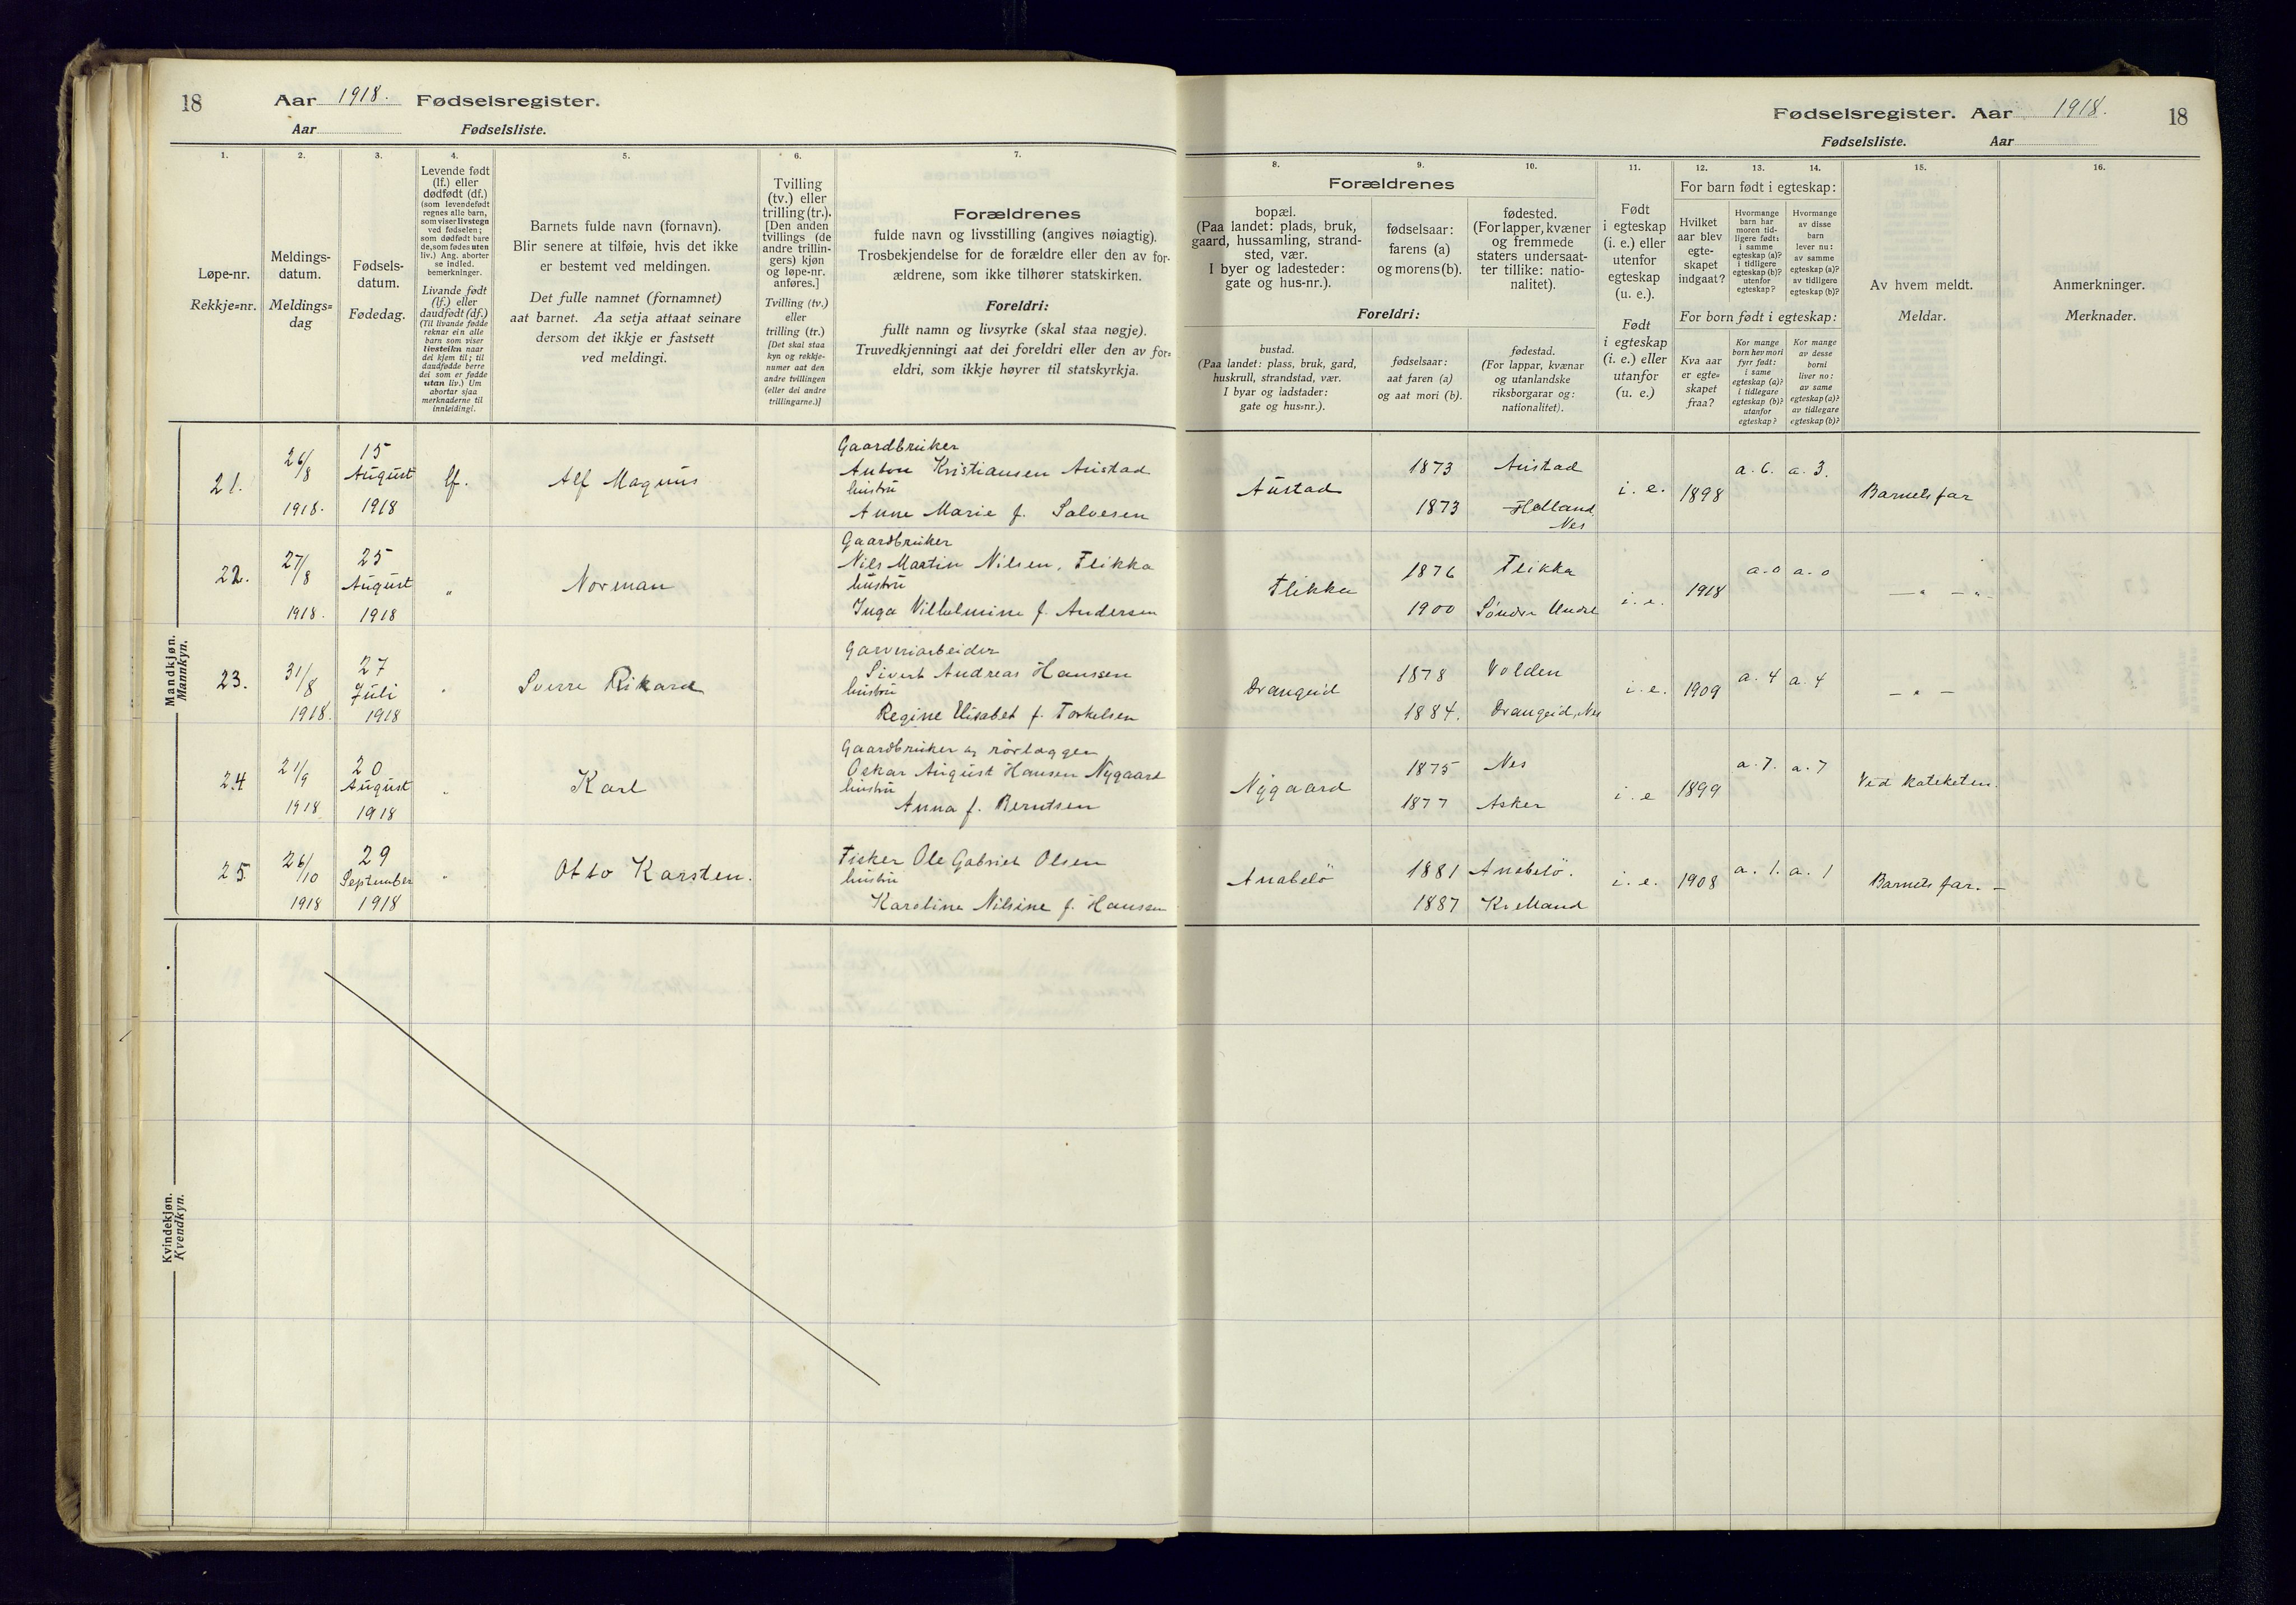 18 Aar 1918. Fødselsregister.
Aar Fødselsliste.
1. 2. 3. 4. 5. 6. 7.
Løpe-nr.
Rekkje=nr.
Meldings-
datum.
Meldings=
dag
Fødsels-
datum.
Fødedag.
Levende født
(lf.) eller
dødfødt (df.)
(som levendefødt
regnes alle barn,
som viser livstegn
ved fødselen;
som dødfødt bare
de, som fødes uten
liv.) Ang. aborter
se indled.
bemerkninger.
Livande født
(lf.) eller
daudfødt (df.)
(Til livande fødde
reknar ein alle
barn som viser
livsteikn naar
dei kjem til; til
daudfødde berre
dei som er fødde
utan liv.) Um
abortar sjaa
merknaderne til
innleidingi.
Barnets fulde navn (fornavn).
Blir senere at tilføie, hvis det ikke
er bestemt ved meldingen.
Det fulle namnet (fornamnet)
aat barnet. Aa setja attaat seinare
dersom det ikkje er fastsett
ved meldingi.
Tvilling
(tv.) eller
trilling (tr.).
[Den anden
tvillings (de
andre trillin-
gers) kjøn
og løpe-nr.
anføres.]
Tvilling (tv.)
eller
trilling (tr.)
[Det skal staa
kyn og rekkje-
numer aat den
andre tvillingen
(eller dei andre
trillingarne.)]
Forældrenes
fulde navn og livsstilling (angives nøiagtig).
Trosbekjendelse for de forældre eller den av for-
ældrene, som ikke tilhører statskirken.
Foreldri:
fullt namn og livsyrke (skal staa nøgje).
Truvedkjenningi aat dei foreldri eller den av for=
eldri, som ikkje høyrer til statskyrkja.
Mandkjøn.
Mannkyn.
21.
26/8
1918.
15
August
1918
lf.
Alf Magnus
Gaardbruker
Anton Kristiansen Austad
hustru
Anne Marie f. Salvesen
22.
27/8
1918.
25
August
1918
"
Norman
Gaardbruker
Nils Martin Nilsen, Flikka
hustru
Inga Vilhelmine f. Andersen
23.
31/8
1918.
27
Juli
1918
"
Sverre Rikard
Garveriarbeider
Sivert Andreas Hanssen
hustru
Regine Elisabet f. Torkelsen
24
21/9
1918
20
August
1918
"
Karl
Gaardbruker og rørlægger
Oskar August Hansen Nygaard
hustru
Anna f. Berntsen
25.
26/10
1918
29
September
1918
"
Otto Karsten.
Fisker Ole Gabriel Olsen
hustru
Karoline Nilsine f. Hansen
Kvindekjøn.
Kvendkyn.
Fødselsregister. Aar 1918. 18
Fødselsliste. Aar
8. 9. 10. 11. 12. 13. 14. 15. 16.
Forældrenes
bopæl.
(Paa landet: plads, bruk,
gaard, hussamling, strand-
sted, vær.
I byer og ladesteder:
gate og hus-nr.).
fødselsaar:
farens (a)
og morens (b).
fødested.
(For lapper, kvæner
og fremmede
staters undersaat-
ter tillike: natio-
nalitet).
Foreldri:
bustad.
(Paa landet: plass, bruk, gard,
huskrull, strandstad, vær.
I byar og ladstader:
gate og hus=nr.).
fødselsaar:
aat faren (a)
og aat mori (b).
fødestad.
(For lappar, kvænar
og utanlandske
riksborgarar og:
nationalitet).
Født
i egteskap
(i. e.) eller
utenfor
egteskap
(u. e.).
Født
i egteskap
(i. e.) eller
utanfor
(u. e.)
For barn født i egteskap:
Hvilket
aar blev
egte-
skapet
indgaat?
Hvormange
barn har
moren tid-
ligere født:
i samme
egteskap (a)?
i tidligere
egteskap (b)?
utenfor
egteskap?
Hvormange
av disse
barn
lever nu:
av samme
egteskap (a)?
av tidligere
egteskap (b)?
For born født i egteskap:
Kva aar
er egte=
skapet
fraa?
Kor mange
born hev mori
fyrr født:
i same
egteskap (a)?
i tidlegare
egteskap (b)?
utanfor
egteskap?
Kor mange
av desse
borni
liver no:
av same
egteskap (a)?
av tidlegare
egteskap (b)?
Av hvem meldt.
Meldar.
Anmerkninger.
Merknader.
Austad
1873 Austad
1873 Helland, Nes
i. e. 1898 a. 6. a. 3. Barnets far
Flikka
1876 Flikka
1900 Søndre Undal
i. e. 1918 a. 0 a. 0 — " — " —
Drangeid
1878 Volden
1884. Drangeid, Nes
i. e. 1909 a. 4 a. 4 — " —
Nygaard
1875 Nes
1877 Asker
i. e 1899 a. 7. a. 7 Ved Kateketen.
Anabelø
1881 Anabelø.
1887 Kvelland
i. e. 1908 a. 1. a. 1 Barnets far. —